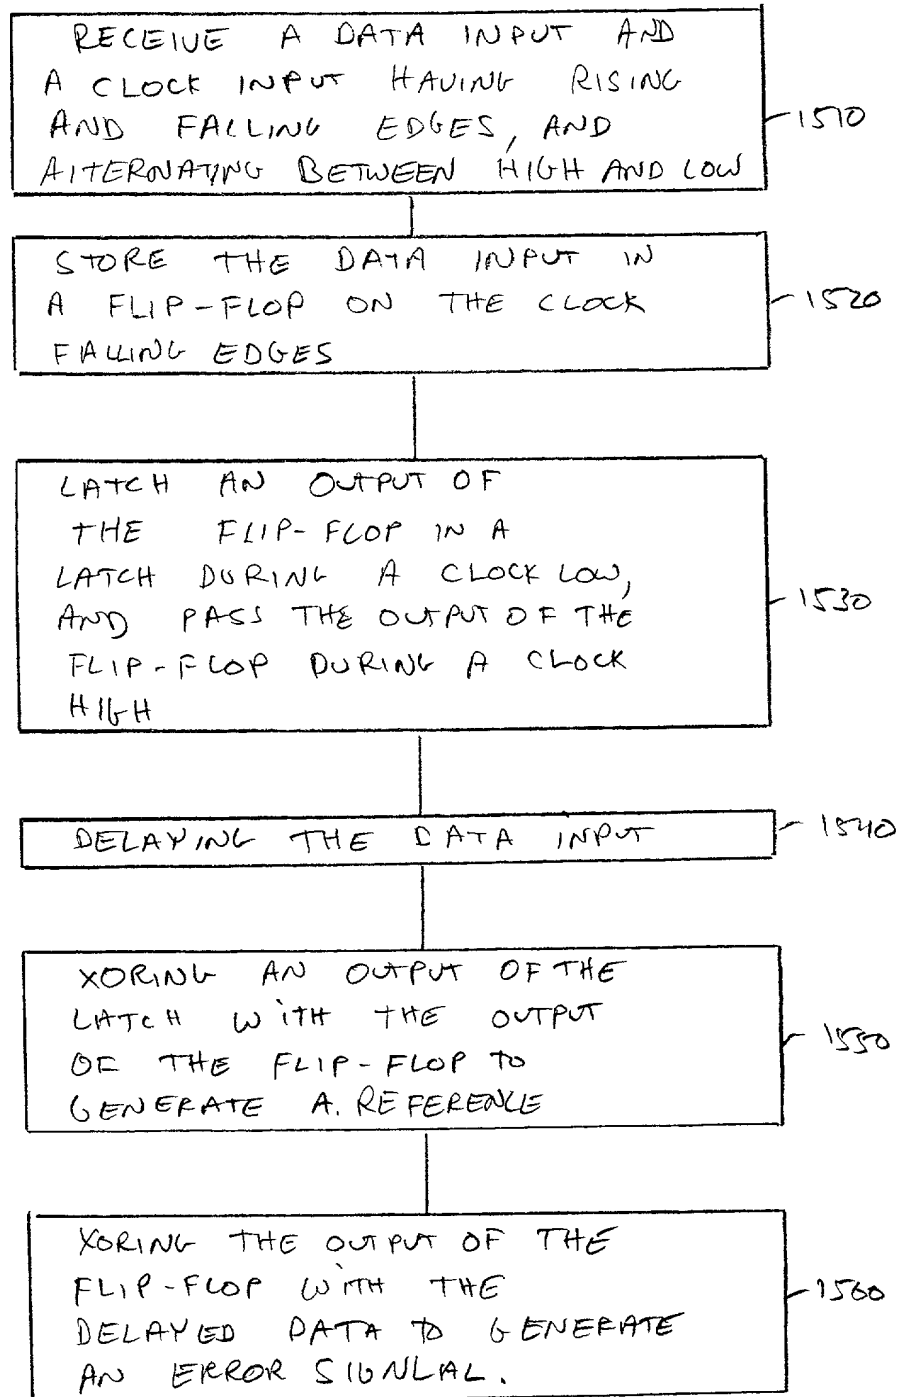 RECEIVE A DATA INPUT AND
A CLOCK INPUT HAVING RISING
AND FALLING EDGES, AND
ALTERNATING BETWEEN HIGH AND LOW
1510
STORE THE DATA INPUT IN
A FLIP-FLOP ON THE CLOCK
FALLING EDGES
1520
LATCH AN OUTPUT OF
THE FLIP-FLOP IN A
LATCH DURING A CLOCK LOW,
AND PASS THE OUTPUT OF THE
FLIP-FLOP DURING A CLOCK
HIGH
1530
DELAYING THE DATA INPUT
1540
XORING AN OUTPUT OF THE
LATCH WITH THE OUTPUT
OF THE FLIP-FLOP TO
GENERATE A. REFERENCE
1550
XORING THE OUTPUT OF THE
FLIP-FLOP WITH THE
DELAYED DATA TO GENERATE
AN ERROR SIGNLAL.
1560